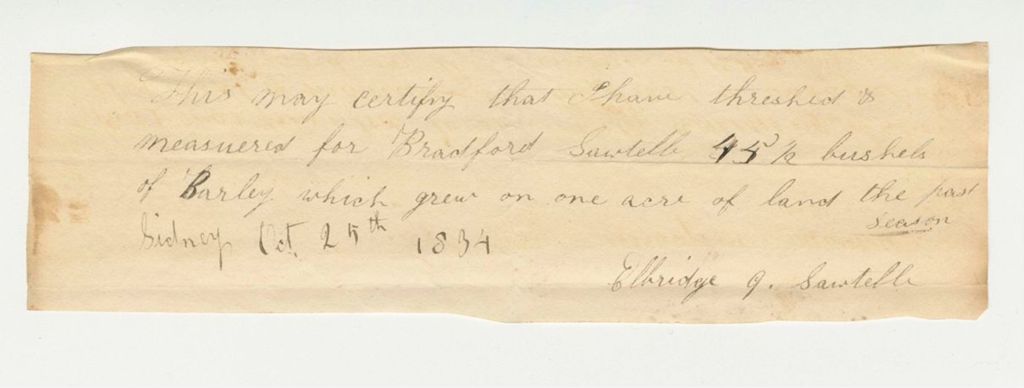 This may certify that I have threshed &
measuered for Bradford Sawtelle 45 ½ bushels
of Barley which grew on one acre of land the past
season
Sidney Oct. 25th 1834
Elbridge G. Sawtelle